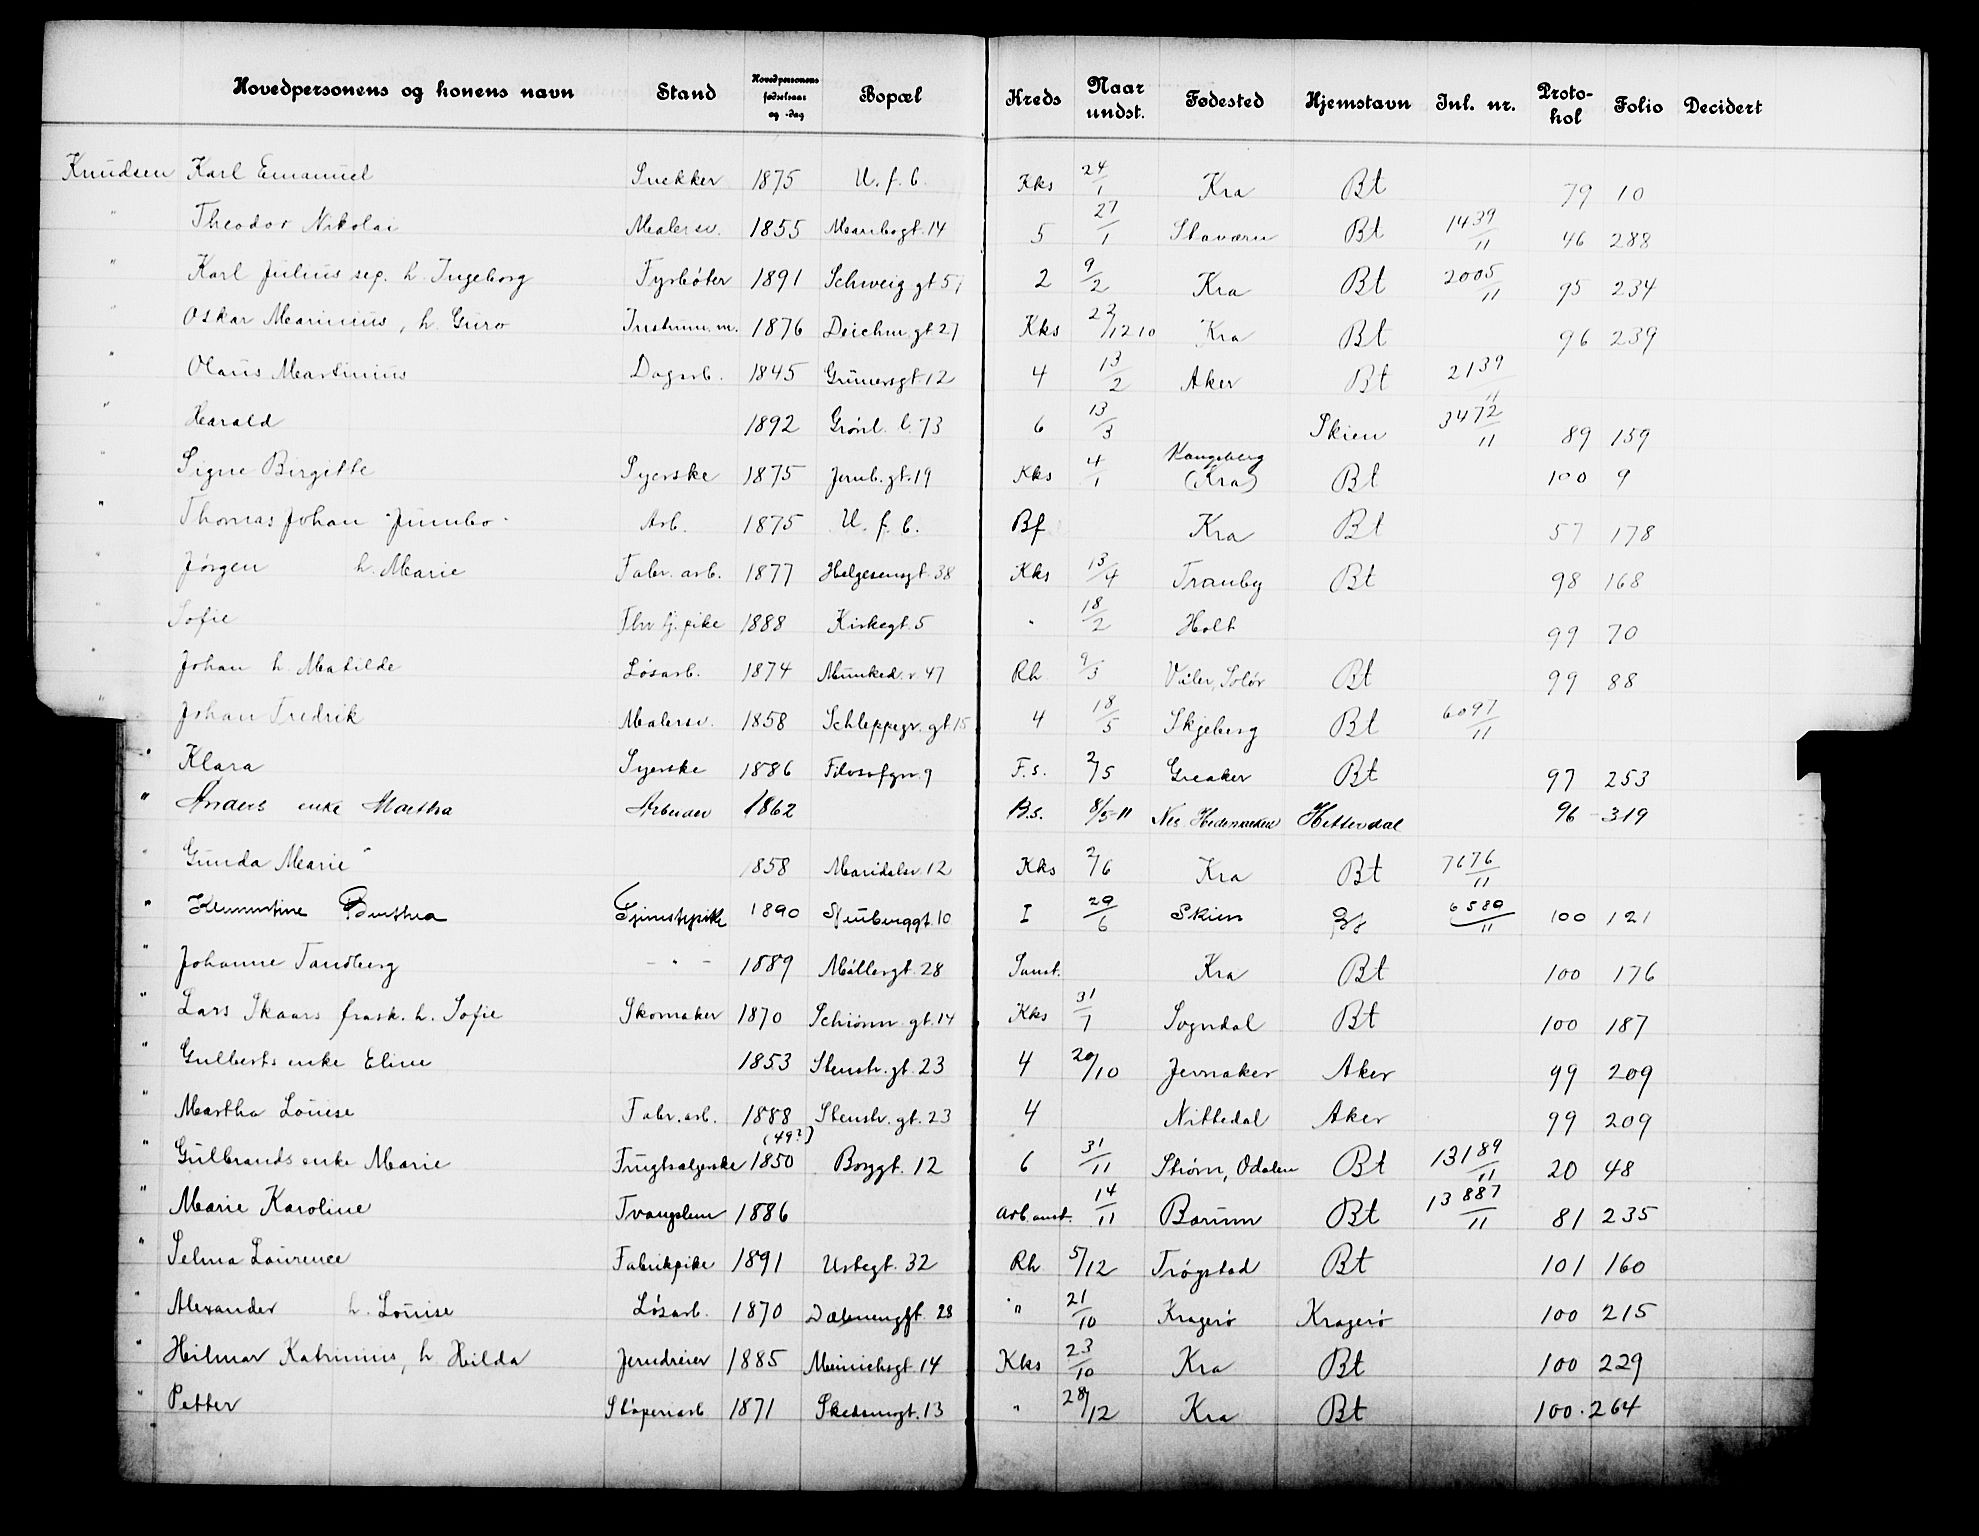 Hovedpersonens og konens navn Stand Hovedpersonens fødselsaar og -dag Bopæl Kreds Naar undst. Fødested Hjemstavn Inl. nr. Protokol Folio Decidert
Knudsen Karl Emanuel Snekker 1875 U. f. b. Kks 24/1 Kra Bt 79 10
" Theodor Nikolai Malersv. 1855 Maribogt. 14 5 27/1 Staværn Bt 1439/11 46 288
" Karl Julius sep. h. Ingeborg Fyrbøter 1891 Schweig gt 57 2 9/2 Kra Bt 2005/11 95 234
" Oskar Marinius, h. Guro Instrum. m. 1876 Deichm. gt. 27 Kks 23/12 10 Kra Bt 96 239
" Olaus Martinius Dagarb. 1845 Grünersgt. 12 4 13/2 Aker Bt 2139/11
" Harald 1892 Grønl. l. 73 6 13/3 Skien 3472/11 89 159
" Signe Birgitte Syerske 1875 Jernb. gt. 19 Kks 4/1 Kongsberg (Kra) Bt 100 9
" Thomas Johan "Jumbo" Arb. 1875 U. f. b. Bf Kra Bt 57 178
" Jørgen h. Marie Fabr. arb. 1877 Helgesensgt. 38 Kks 13/4 Tranby Bt 98 168
" Sofie Thv tj. pike 1888 Kirkegt. 5 " 18/2 Holt 99 70
Johan h. Matilde Løsarb. 1874 Munked. v. 47 Rh 9/3 Våler, Solør Bt 99 88
" Johan Fredrik Malersv. 1858 Schleppegr. gt. 15 4 18/5 Skjeberg Bt 6097/11
" Klara Syerske 1886 Filosofgn. 9 F.s. 2/5 Greaker Bt 97 253
" Anders enke Martha Arbeider 1862 B.s. 8/5-11 Nes Hedemarken Hitterdal 96 - 319
" Gunda Marie 1858 Maridalsv. 12 Kks 2/6 Kra Bt 7676/11
" Klementine Berthea Tjenestepike 1890 Stenberggt. 10 I 29/6 Skien 6580/11 100 121
" Johanne Tandberg - " - 1889 Møllergt. 28 Sunst. Kra Bt 100 176
" Lars Skaars frask. h. Sofie Skomaker 1870 Schiønn. gt. 14 Kks 31/7 Sogndal Bt 100 187
" Gulberts enke Eline 1853 Stenstr. gt. 23 4 20/10 Jevnaker Aker 99 209
" Martha Louise Fabr. arb. 1888 Stenstr. gt. 23 4 Nittedal Aker 99 209
" Gulbrands enke Marie Frugtsælgerske (49?) 1850 Borggt. 12 6 31/11 Strøm, Odalen Bt 13189/11 20 48
" Marie Karoline Tvangslem 1886 Arb. anst. 14/11 Bærum Bt 13887/11 81 235
" Selma Laurence Fabrikpike 1891 Urtegt. 32 Rh 5/12 Trøgstad Bt 101 160
" Alexander h. Louise Løsarb. 1870 Dælenenggt. 28 " 21/10 Kragerø Kragerø 100 215
" Hilmar Katrinius, h. Hilda Jerndreier 1885 Meinichsgt. 14 Kks 23/10 Kra Bt 100 229
" Petter Støperiarb 1871 Skedsmogt. 13 " 28/12 Kra Bt 100 . 264